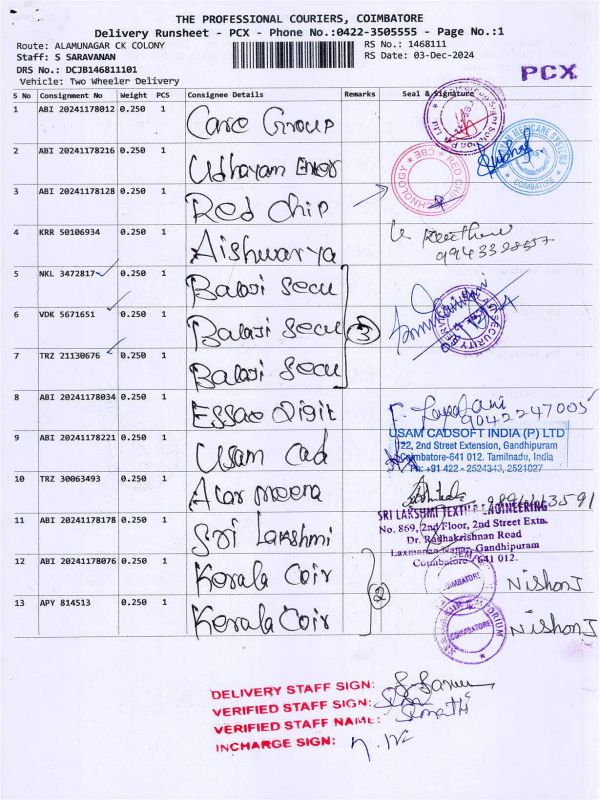 THE PROFESSIONAL COURIERS, COIMBATORE
Delivery Runsheet - PCX - Phone No.:0422-3505555 - Page No.:1
Route: ALAMUNAGAR CK COLONY
RS No.: 1468111
Staff: S SARAVANAN
RS Date: 03-Dec-2024
DRS No.: DCJB146811101
Vehicle: Two Wheeler Delivery
PCX
S No Consignment No Weight PCS Consignee Details Remarks Seal & Signature
1 ABI 20241178012 0.250 1 Care Group
2 ABI 20241178216 0.250 1 Udhayam
COIMBATORE
3 ABI 20241178128 0.250 1 Red Chip
RED CHIP TECHNOLOGY CBE
4 KRR 50106934 0.250 1 Aishwarya
5 NKL 3472817 0.250 1 Balaji Secu
6 VDK 5671651 0.250 1 Balaji Secu 3
7 TRZ 21130676 0.250 1 Balaji Secu
8 ABI 20241178034 0.250 1 Essae Digit
9042247005
9 ABI 20241178221 0.250 1 Usam Cad
USAM CADSOFT INDIA (P) LTD
22, 2nd Street Extension, Gandhipuram
Coimbatore-641 012. Tamilnadu, India
Ph: +91 422 - 2524343, 2521027
10 TRZ 30063493 0.250 1 Alar meera
11 ABI 20241178178 0.250 1 Sri Lakshmi
SRI LAKSHMI TEXTILE ENGINEERING
No. 869, 2nd Floor, 2nd Street Extn.
Dr. Radhakrishnan Road
Laxmanan Nagar, Gandhipuram
Coimbatore - 641 012.
12 ABI 20241178076 0.250 1 Kerala Coir 2
COIMBATORE
Nishon J
13 APY 814513 0.250 1 Kerala Coir
COIMBATORE
Nishon J
DELIVERY STAFF SIGN:
VERIFIED STAFF SIGN:
VERIFIED STAFF NAME:
INCHARGE SIGN: